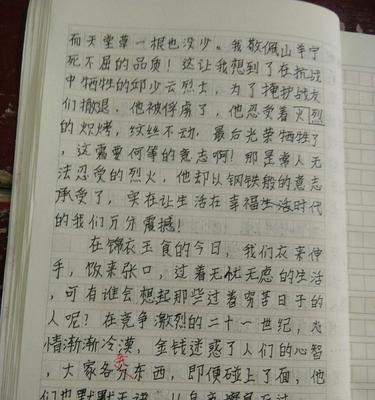 而天堂草一根也没少。我敬佩山羊宁
死不屈的品质！这让我想到了在抗战
中牺牲的邱少云烈士，为了掩护战友
们撤退，他被俘虏了，他忍受着火烈
的炽烤，纹丝不动，最后光荣牺牲了
，这需要何等的意志啊！那是常人无
法忍受的烈火，他却以钢铁般的意志
承受了，实在让生活在幸福生活时代
的我们万分震撼！
在锦衣玉食的今日，我们衣来伸
手，饭来张口，过着无忧无虑的生活
，可有谁会想起那些过着穷苦日子的
人呢？在竞争激烈的二十一世纪，人
情渐渐冷漠，金钱迷惑了人们的心智
，大家各分东西，即便碰上了面，他
们也默默无语